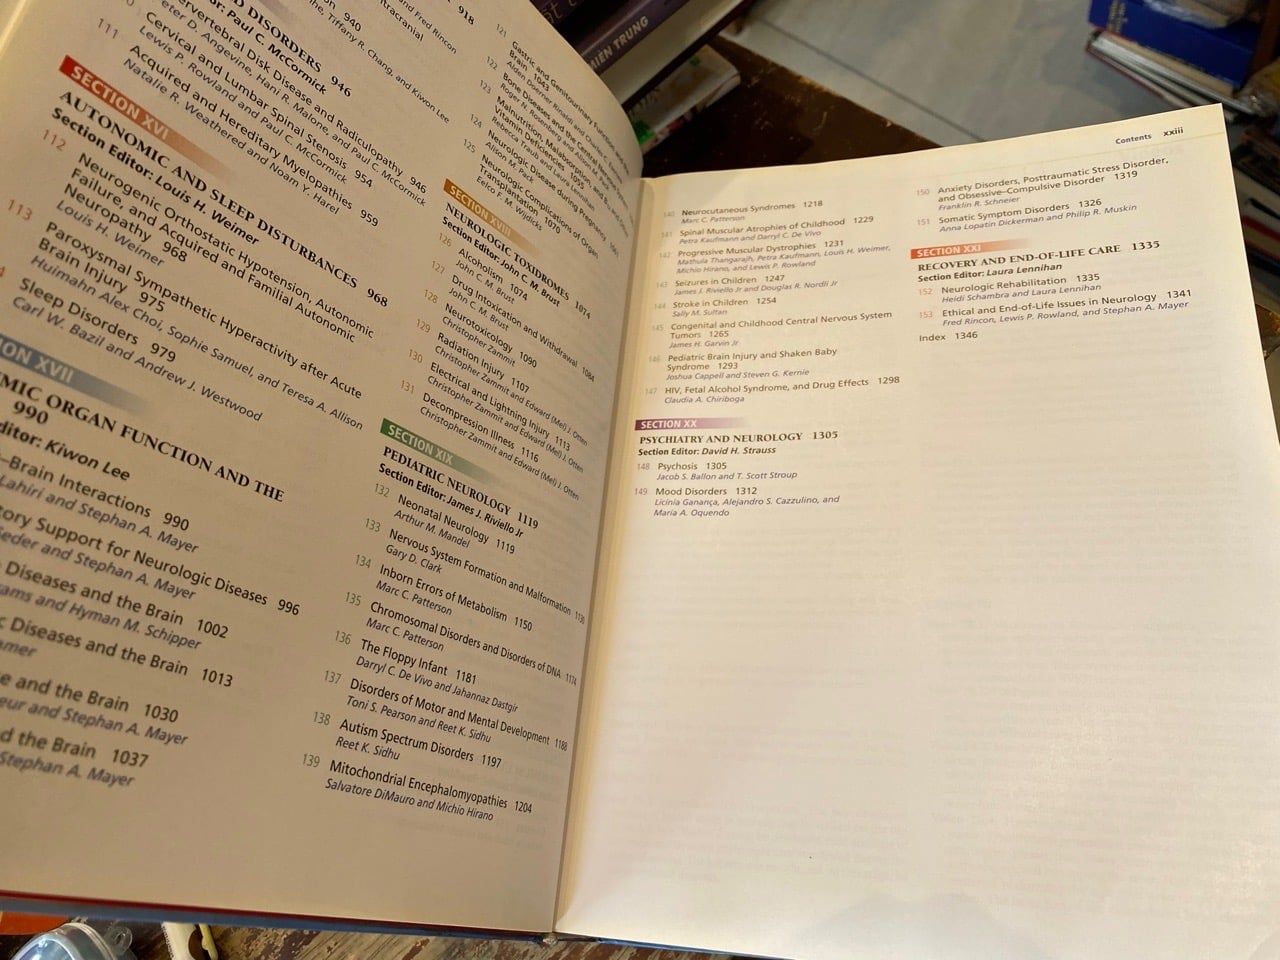 918
and Fred Rincon
940
the, Tiffany R. Chang, and Kiwon Lee
tracranial
D DISORDERS 946
Paul C. McCormick
Intervertebral Disk Disease and Radiculopathy 946
Peter D. Angevine, Hani R. Malone, and Paul C. McCormick
Cervical and Lumbar Spinal Stenosis 954
Lewis P. Rowland and Paul C. McCormick
111 Acquired and Hereditary Myelopathies 959
Natalie R. Weathered and Noam Y. Harel
SECTION XVI
AUTONOMIC AND SLEEP DISTURBANCES 968
Section Editor: Louis H. Weimer
112 Neurogenic Orthostatic Hypotension, Autonomic
Failure, and Acquired and Familial Autonomic
Neuropathy 968
Louis H. Weimer
113 Paroxysmal Sympathetic Hyperactivity after Acute
Brain Injury 975
Huimahn Alex Choi, Sophie Samuel, and Teresa A. Allison
Sleep Disorders 979
Carl W. Bazil and Andrew J. Westwood
ION XVII
MIC ORGAN FUNCTION AND THE
990
ditor: Kiwon Lee
–Brain Interactions 990
Lahiri and Stephan A. Mayer
tory Support for Neurologic Diseases 996
eder and Stephan A. Mayer
Diseases and the Brain 1002
ams and Hyman M. Schipper
c Diseases and the Brain 1013
amer
e and the Brain 1030
eur and Stephan A. Mayer
d the Brain 1037
Stephan A. Mayer
121 Gastric and Genitourinary
Brain 1043
122 Bone Diseases and the Central Nervous
Roger N. Rosenberg and Alison M. Pack
123 Malnutrition, Malabsorption, and
Vitamin Deficiencies 1055
Rebecca Traub and Laura Lennihan
124 Neurologic Disease during Pregnancy
Alison M. Pack
125 Neurologic Complications of Organ
Transplantation 1070
Eelco F. M. Wijdicks
SECTION XVIII
NEUROLOGIC TOXIDROMES 1074
Section Editor: John C. M. Brust
126 Alcoholism 1074
John C. M. Brust
127 Drug Intoxication and Withdrawal 1084
John C. M. Brust
128 Neurotoxicology 1090
Christopher Zammit
129 Radiation Injury 1107
Christopher Zammit and Edward (Mel) J. Otten
130 Electrical and Lightning Injury 1113
Christopher Zammit and Edward (Mel) J. Otten
131 Decompression Illness 1116
Christopher Zammit and Edward (Mel) J. Otten
SECTION XIX
PEDIATRIC NEUROLOGY 1119
Section Editor: James J. Riviello Jr
132 Neonatal Neurology 1119
Arthur M. Mandel
133 Nervous System Formation and Malformation 1130
Gary D. Clark
134 Inborn Errors of Metabolism 1150
Marc C. Patterson
135 Chromosomal Disorders and Disorders of DNA 1174
Marc C. Patterson
136 The Floppy Infant 1181
Darryl C. De Vivo and Jahannaz Dastgir
137 Disorders of Motor and Mental Development 1188
Toni S. Pearson and Reet K. Sidhu
138 Autism Spectrum Disorders 1197
Reet K. Sidhu
139 Mitochondrial Encephalomyopathies 1204
Salvatore DiMauro and Michio Hirano
MIỀN TRUNG
Contents xxiii
140 Neurocutaneous Syndromes 1218
Marc C. Patterson
141 Spinal Muscular Atrophies of Childhood 1229
Petra Kaufmann and Darryl C. De Vivo
142 Progressive Muscular Dystrophies 1231
Mathula Thangarajh, Petra Kaufmann, Louis H. Weimer,
Michio Hirano, and Lewis P. Rowland
143 Seizures in Children 1247
James J. Riviello Jr and Douglas R. Nordli Jr
144 Stroke in Children 1254
Sally M. Sultan
145 Congenital and Childhood Central Nervous System
Tumors 1265
James H. Garvin Jr
146 Pediatric Brain Injury and Shaken Baby
Syndrome 1293
Joshua Cappell and Steven G. Kernie
147 HIV, Fetal Alcohol Syndrome, and Drug Effects 1298
Claudia A. Chiriboga
SECTION XX
PSYCHIATRY AND NEUROLOGY 1305
Section Editor: David H. Strauss
148 Psychosis 1305
Jacob S. Ballon and T. Scott Stroup
149 Mood Disorders 1312
Licínia Ganança, Alejandro S. Cazzulino, and
Maria A. Oquendo
150 Anxiety Disorders, Posttraumatic Stress Disorder,
and Obsessive–Compulsive Disorder 1319
Franklin R. Schneier
151 Somatic Symptom Disorders 1326
Anna Lopatin Dickerman and Philip R. Muskin
SECTION XXI
RECOVERY AND END-OF-LIFE CARE 1335
Section Editor: Laura Lennihan
152 Neurologic Rehabilitation 1335
Heidi Schambra and Laura Lennihan
153 Ethical and End-of-Life Issues in Neurology 1341
Fred Rincon, Lewis P. Rowland, and Stephan A. Mayer
Index 1346